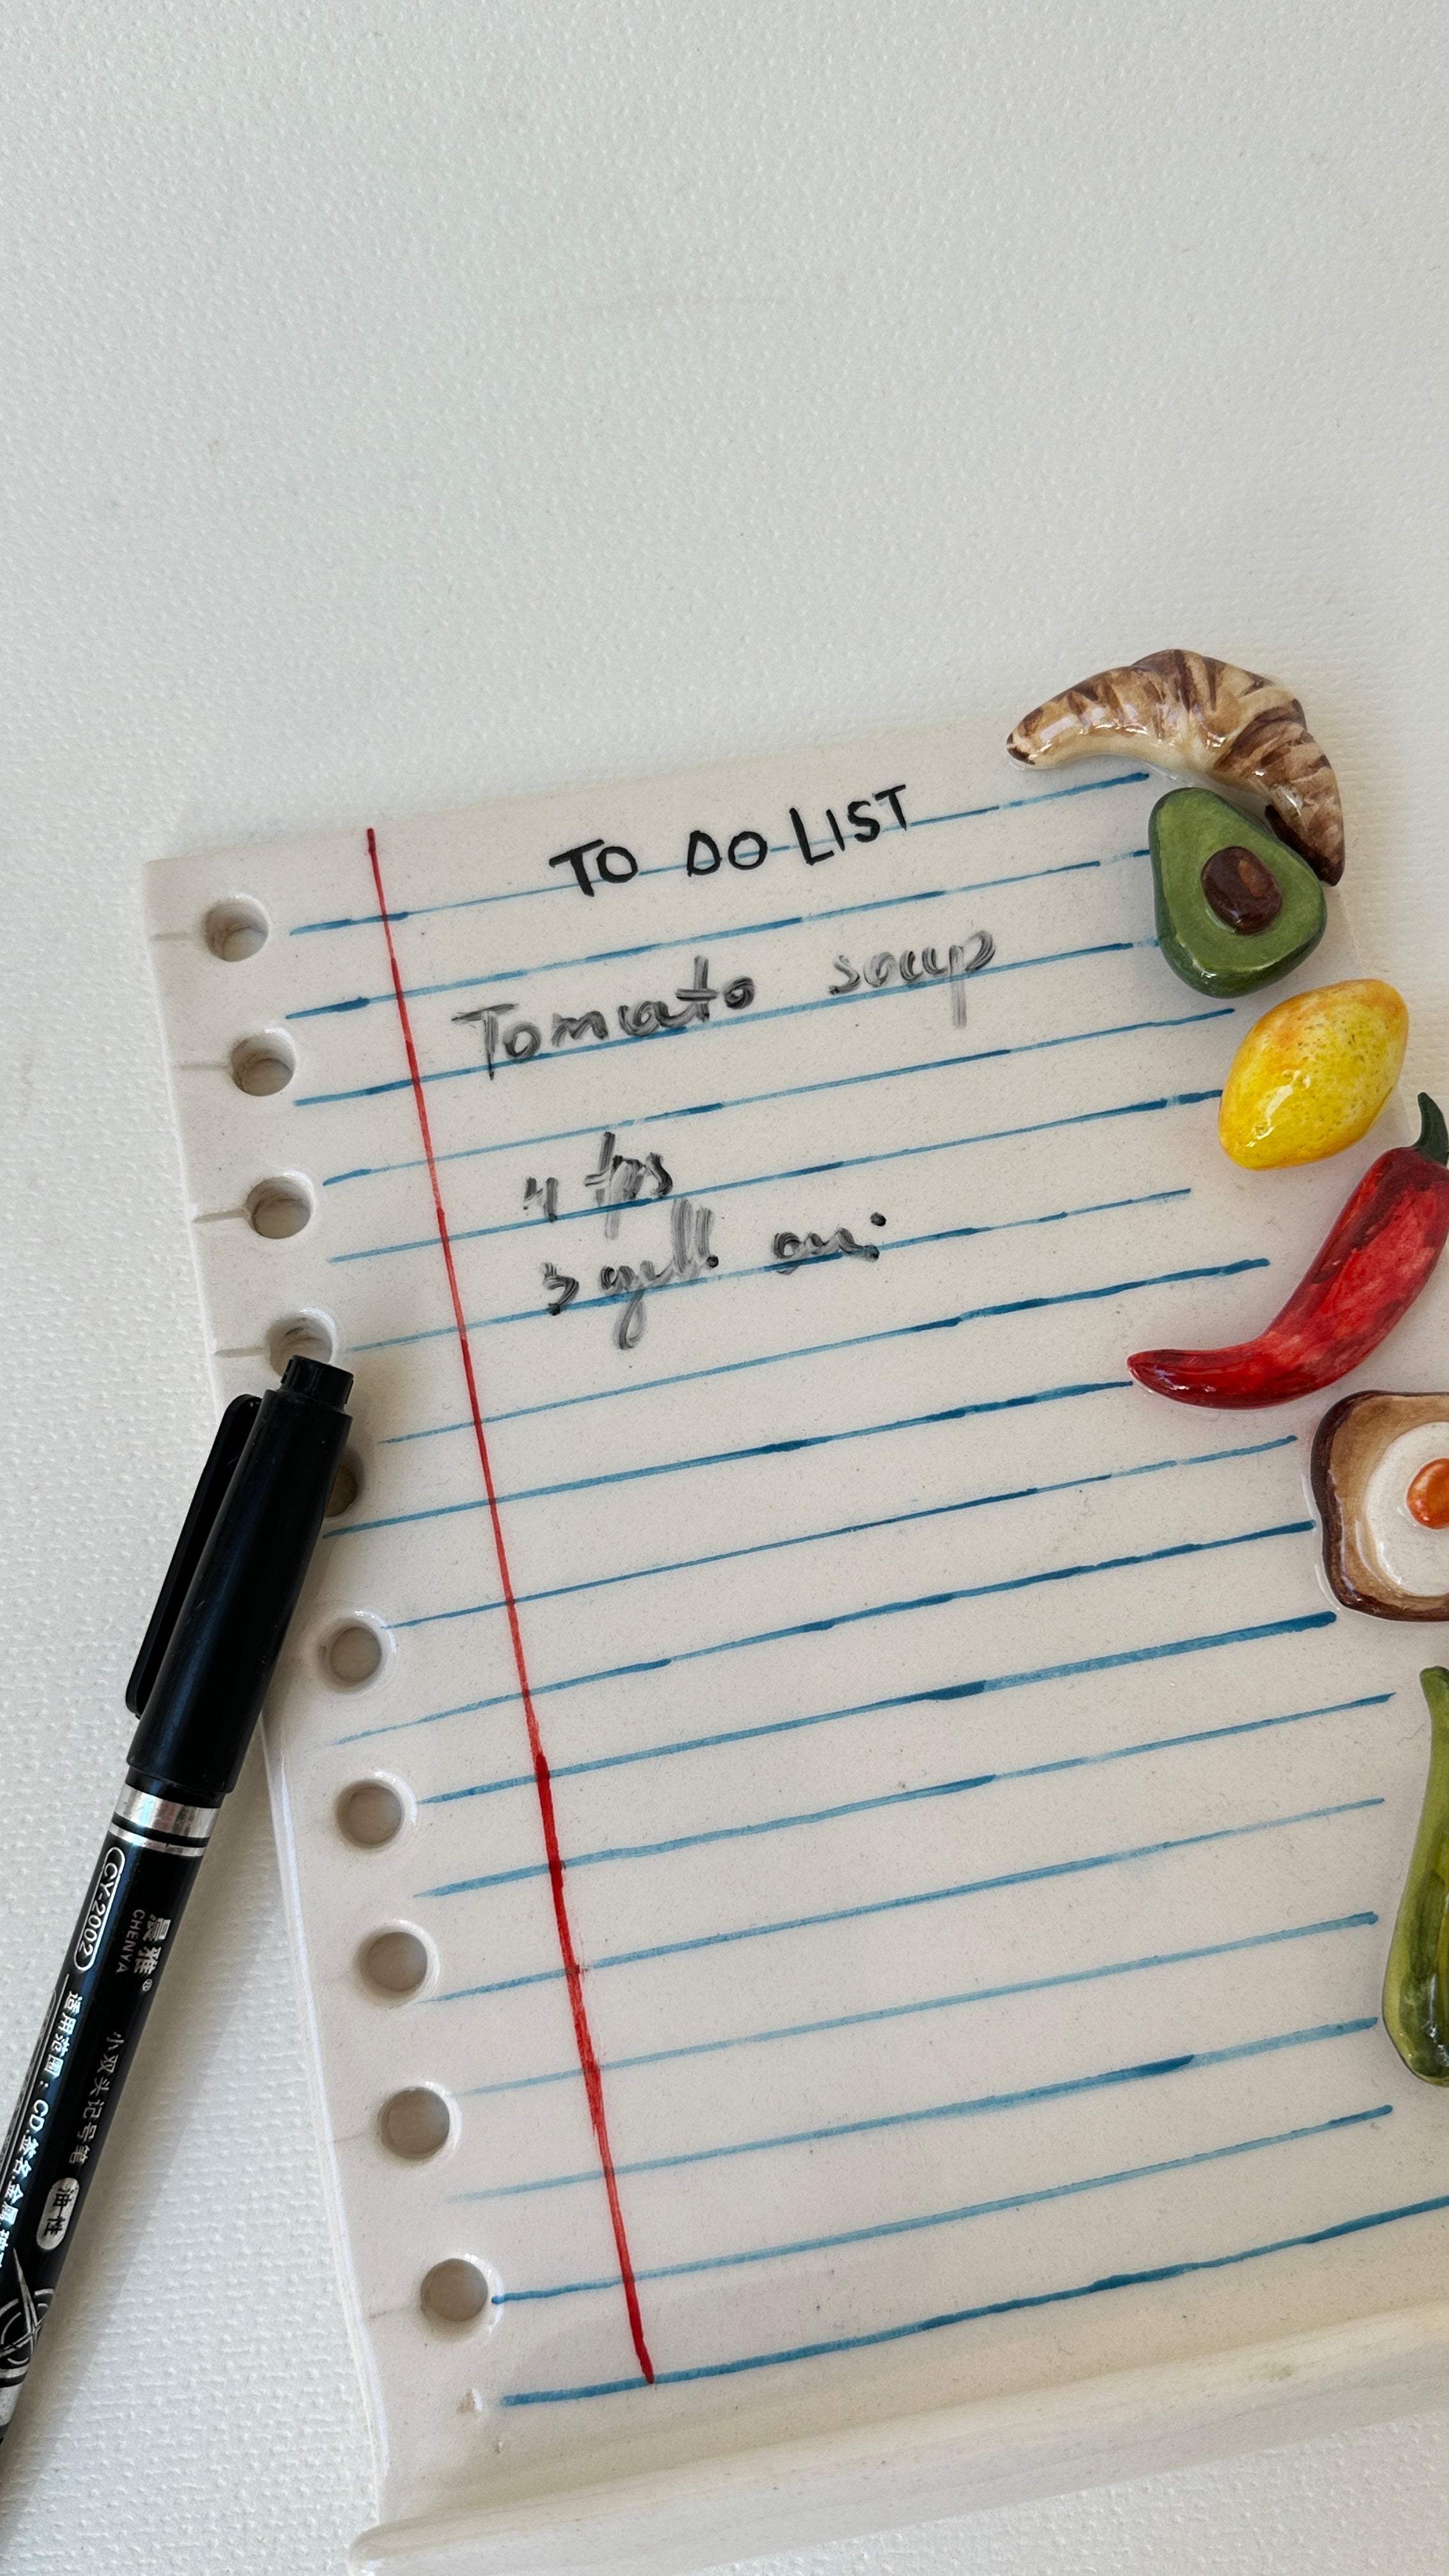 TO DO LIST
Tomato soup
4 tps
3 yell. oni.
CY-2002
晨雅®
CHENYA
小双头记号笔 油性
适用范围：CD.签名.金属.